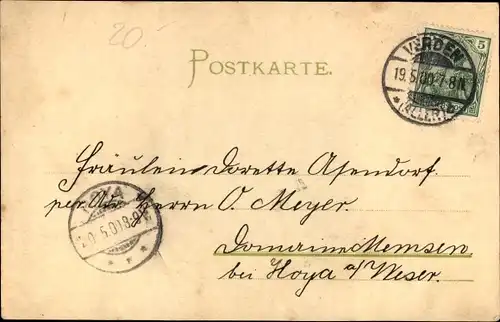 20-
POSTKARTE.
5
VERDEN
19.5.00.7-8N.
* (ALLER) *
Fräulein Dorette Asendorf.
per Adr Herrn O. Meyer.
HOYA
20.5.00.8-9V.
Domaine Memsen
bei Hoya a/Weser.